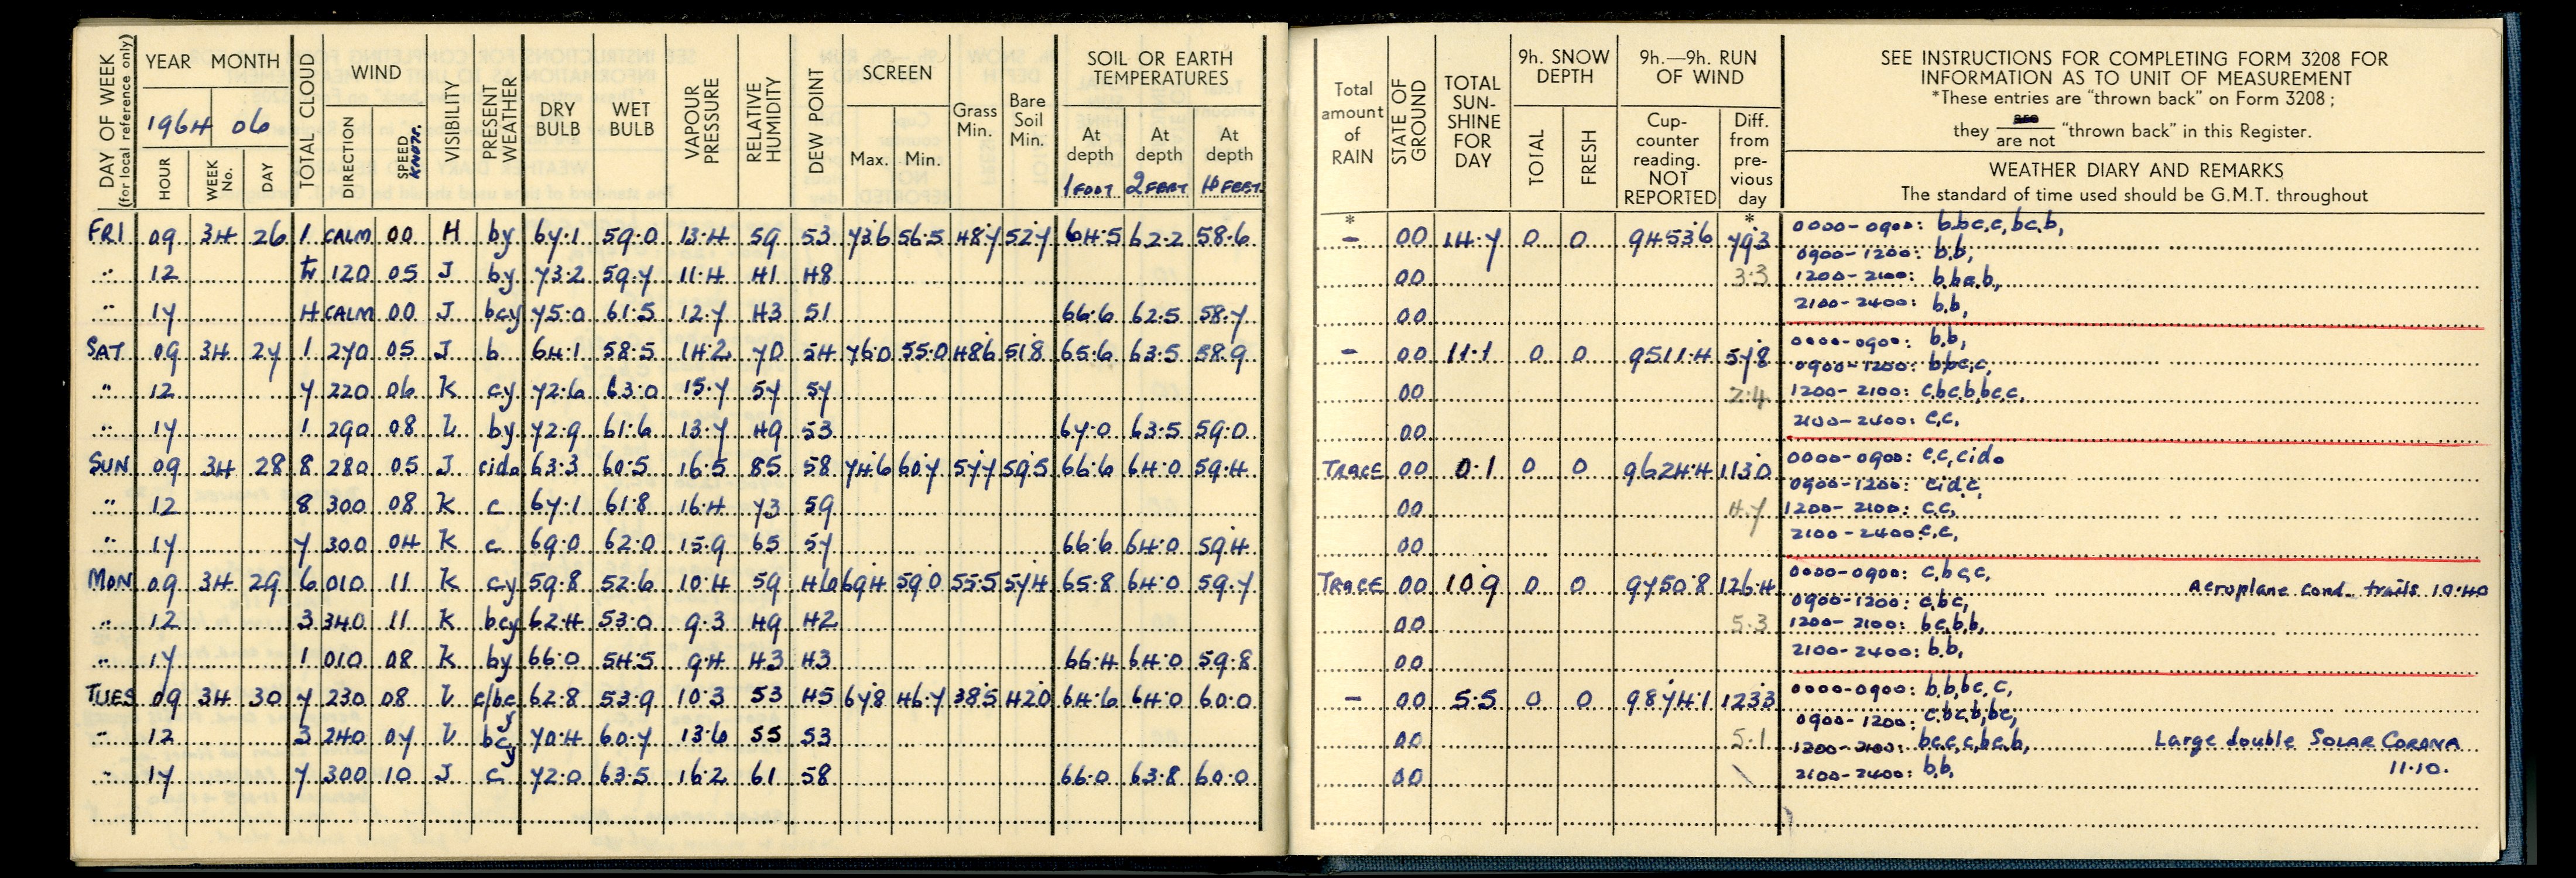 DAY OF WEEK
(for local reference only)
YEAR MONTH
1964 06
HOUR
WEEK No.
DAY
TOTAL CLOUD
WIND
DIRECTION
SPEED
KNOTS.
VISIBILITY
PRESENT WEATHER
DRY BULB
WET BULB
VAPOUR PRESSURE
RELATIVE HUMIDITY
DEW POINT
SCREEN
Max. Min.
Grass Min.
Bare Soil Min.
SOIL OR EARTH TEMPERATURES
At depth 1 FOOT
At depth 2 FEET
At depth 4 FEET.
FRI 09 34 26 1 CALM 00 H by 67.1 59.0 13.4 59 53 73.6 56.5 48.7 52.7 64.5 62.2 58.6
" 12 tr 120 05 J by 73.2 59.7 11.4 41 48
" 17 4 CALM 00 J bcy 75.0 61.5 12.7 43 51 66.6 62.5 58.7
SAT 09 34 27 1 270 05 J b 64.1 58.5 14.2 70 54 76.0 55.0 48.6 51.8 65.6 63.5 58.9
" 12 7 220 06 K cy 72.6 63.0 15.7 57 57
" 17 1 290 08 L by 72.9 61.6 13.7 49 53 67.0 63.5 59.0
SUN 09 34 28 8 280 05 J cido 63.3 60.5 16.5 85 58 74.6 60.7 57.7 59.5 66.6 64.0 59.4
" 12 8 300 08 K c 67.1 61.8 16.4 73 59
" 17 7 300 04 K c 69.0 62.0 15.9 65 57 66.6 64.0 59.4
MON 09 34 29 6 010 11 K cy 59.8 52.6 10.4 59 46 69.4 59.0 55.5 57.4 65.8 64.0 59.7
" 12 3 340 11 K bcy 62.4 53.0 9.3 49 42
" 17 1 010 08 K by 66.0 54.5 9.4 43 43 66.4 64.0 59.8
TUES 09 34 30 7 230 08 L c/bc y 62.8 53.9 10.3 53 45 67.8 46.7 38.5 42.0 64.6 64.0 60.0
" 12 3 240 07 L bcy 70.4 60.7 13.6 55 53
" 17 7 300 10 J c 72.0 63.5 16.2 61 58 66.0 63.8 60.0
Total amount of RAIN
STATE OF GROUND
TOTAL SUN-SHINE FOR DAY
9h. SNOW DEPTH
TOTAL
FRESH
9h.—9h. RUN OF WIND
Cup-counter reading. NOT REPORTED
Diff. from pre-vious day
SEE INSTRUCTIONS FOR COMPLETING FORM 3208 FOR
INFORMATION AS TO UNIT OF MEASUREMENT
*These entries are "thrown back" on Form 3208;
they are not "thrown back" in this Register.
WEATHER DIARY AND REMARKS
The standard of time used should be G.M.T. throughout
* *
– 00 14.7 0 0 9453.6 79.3 0000-0900: b,bc,c,bc,b,
0900-1200: b,b,
00 3.3 1200-2100: b,bc,b,
00 2100-2400: b,b,
– 00 11.1 0 0 9511.4 57.8 0000-0900: b,b,
0900-1200: b,bc,c,
00 2.4 1200-2100: c,bc,b,bc,c,
00 2100-2400: c,c,
TRACE 00 0.1 0 0 9624.4 113.0 0000-0900: c,c,cido
0900-1200: cid,c,
00 4.7 1200-2100: c,c,
00 2100-2400: c,c,
TRACE 00 10.9 0 0 9750.8 126.4 0000-0900: c,bc,c, Aeroplane cond. trails 10.40
0900-1200: c,bc,
00 5.3 1200-2100: bc,b,b,
00 2100-2400: b,b,
– 00 5.5 0 0 9874.1 123.3 0000-0900: b,b,bc,c,
0900-1200: c,bc,b,bc,
00 5.1 1200-2100: bc,c,c,bc,b, Large double SOLAR CORONA
00 2100-2400: b,b, 11.10.